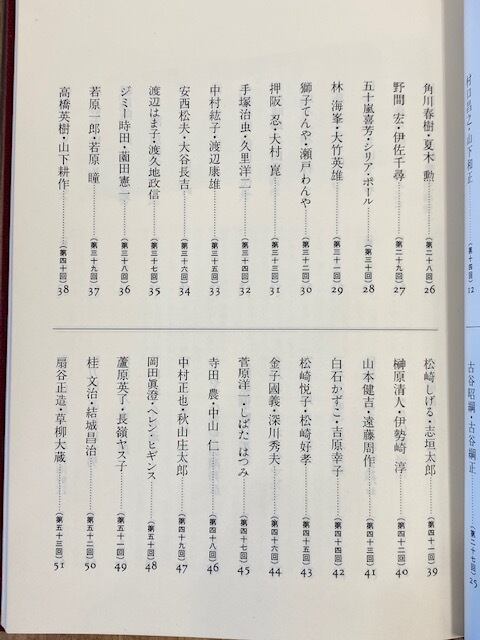 角川春樹・夏木 勲………（第二十八回）26
野間 宏・伊佐千尋………（第二十九回）27
五十嵐喜芳・シリア・ポール………（第三十回）28
林 海峯・大竹英雄………（第三十一回）29
獅子てんや・瀬戸わんや………（第三十二回）30
押阪 忍・大村 崑………（第三十三回）31
手塚治虫・久里洋二………（第三十四回）32
中村紘子・渡辺康雄………（第三十五回）33
安西松夫・大谷長吉………（第三十六回）34
渡辺はま子・渡久地政信………（第三十七回）35
ジミー時田・園田憲一………（第三十八回）36
若原一郎・若原 瞳………（第三十九回）37
高橋英樹・山下耕作………（第四十回）38
松崎しげる・志垣太郎………（第四十一回）39
榊原清人・伊勢崎 淳………（第四十二回）40
山本健吉・遠藤周作………（第四十三回）41
白石かずこ・吉原幸子………（第四十四回）42
松崎悦子・松崎好孝………（第四十五回）43
金子國義・深川秀夫………（第四十六回）44
菅原洋一・しばた はつみ………（第四十七回）45
寺田 農・中山 仁………（第四十八回）46
中村正也・秋山庄太郎………（第四十九回）47
岡田眞澄・ヘレン・ヒギンス………（第五十回）48
蘆原英了・長嶺ヤス子………（第五十一回）49
桂 文治・結城昌治………（第五十二回）50
扇谷正造・草柳大蔵………（第五十三回）51
（第十四回）12
古谷昭綱・古谷綱正………（第二十七回）25